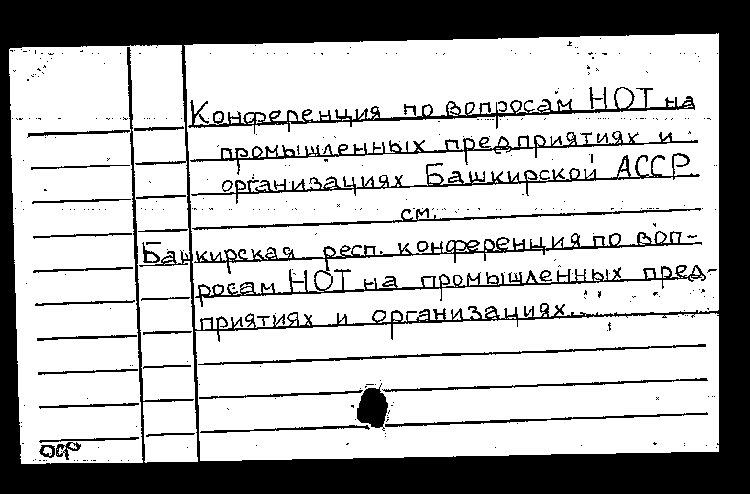 Конференция по вопросам НОТ на
промышленных предприятиях и
организациях Башкирской АССР
см.
Башкирская респ. конференция по воп-
росам НОТ на промышленных пред-
приятиях и организациях...